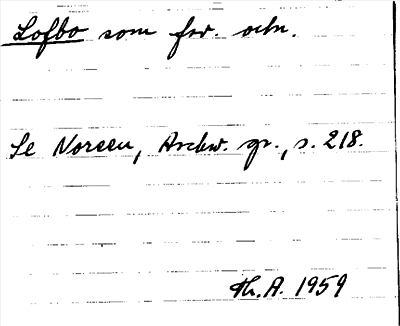 Lofbo som fsv. ortn.
Se Noreen, Aschw. gr., s. 218.
Th. A. 1959